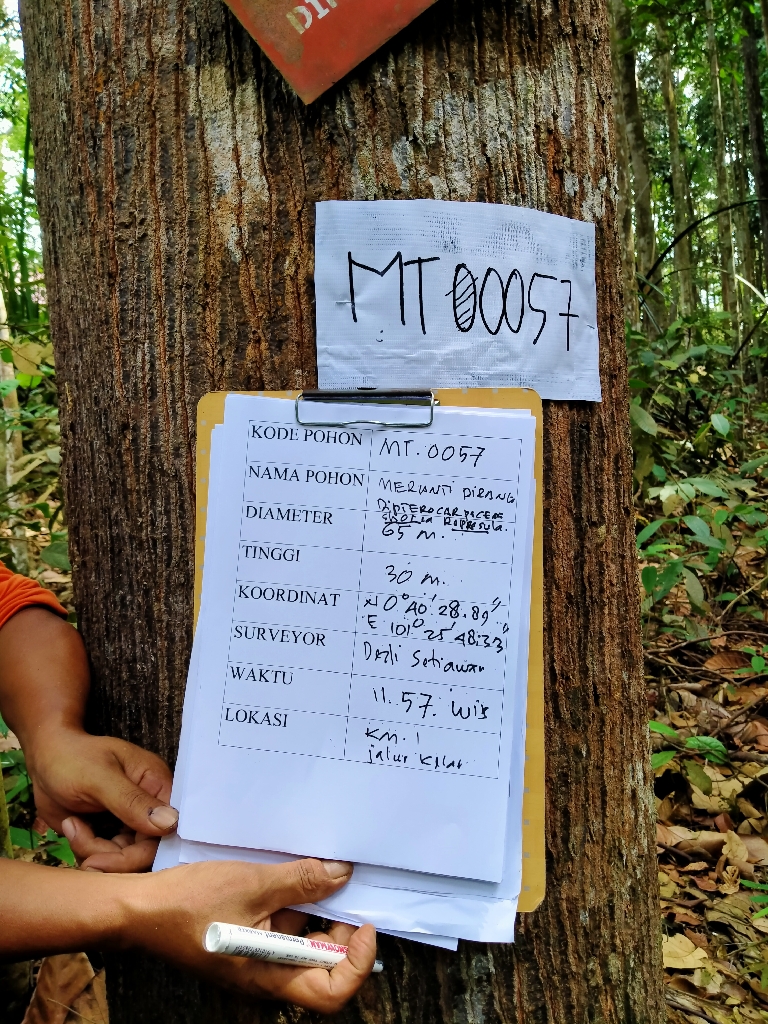 MT 00057
KODE POHON MT. 0057
NAMA POHON MERANTI PIRANG
DIPTEROCARPACEAE
DIAMETER 65 m.
TINGGI 30 m.
KOORDINAT N 0° 40' 28.89"
E. 101° 25' 48.33"
SURVEYOR Setiawan
WAKTU 11.57. WIB
LOKASI KM. 1
jalur